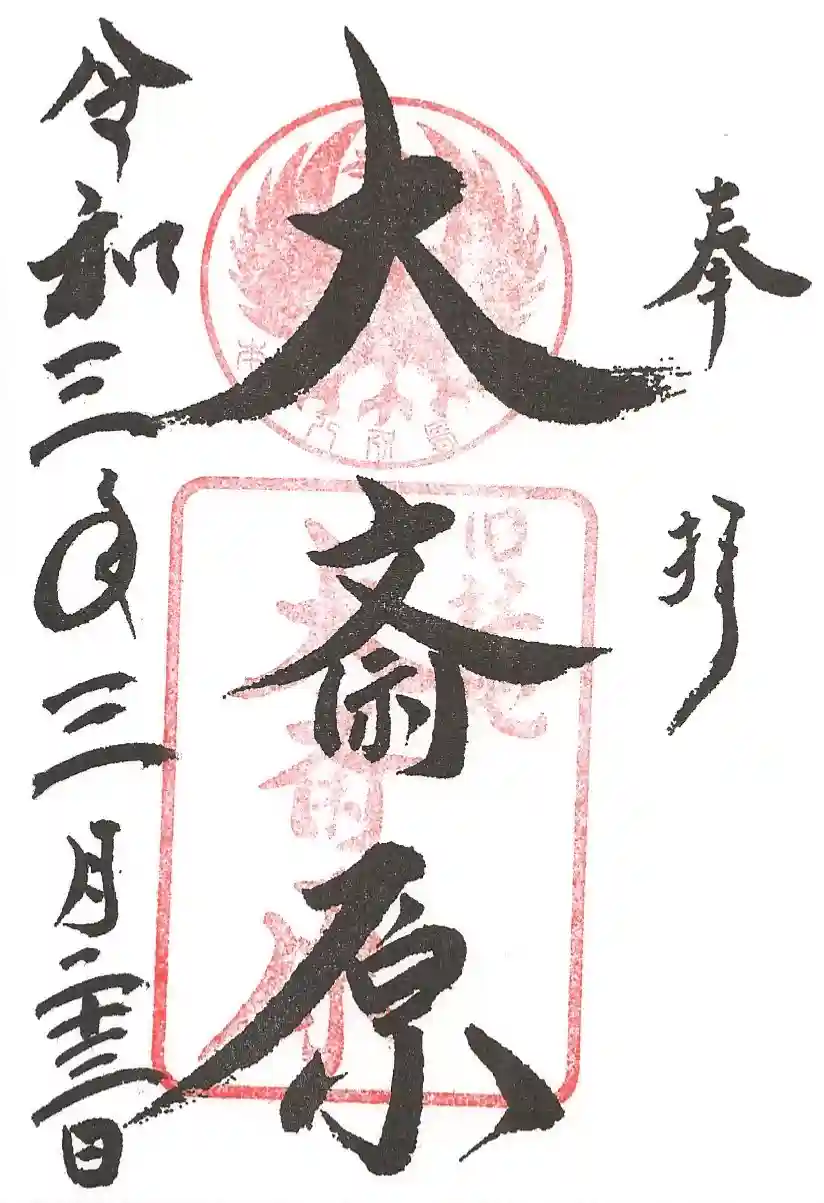 奉拝
大斎原
旧社地
大斎原
令和三年三月二十三日